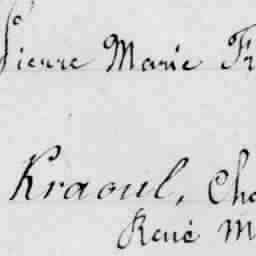 Pierre Marie Fr
Kraoul, Cha
René M